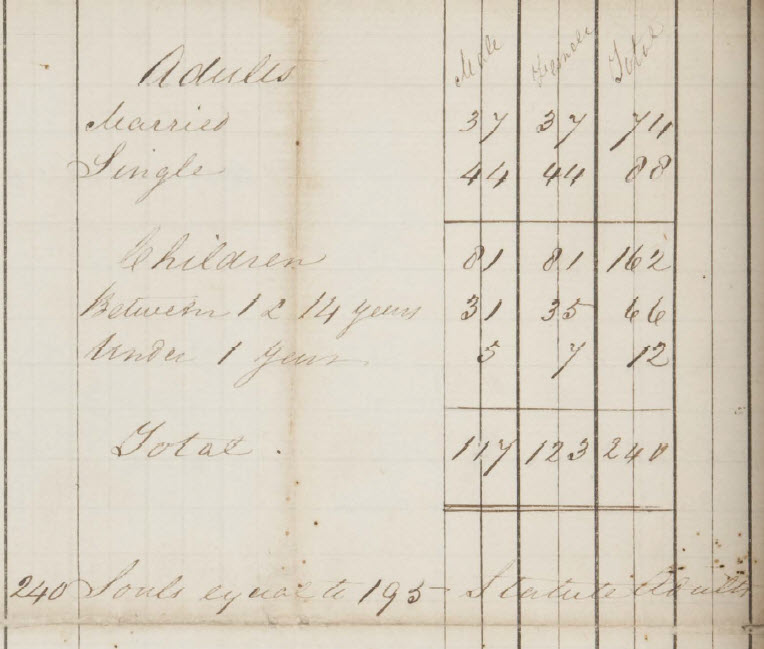 Male Female Total
Adults
Married 37 37 74
Single 44 44 88
Children 81 81 162
Between 1 & 14 years 31 35 66
Under 1 year 5 7 12
Total . 117 123 240
240 Souls equal to 195 Statute Adults